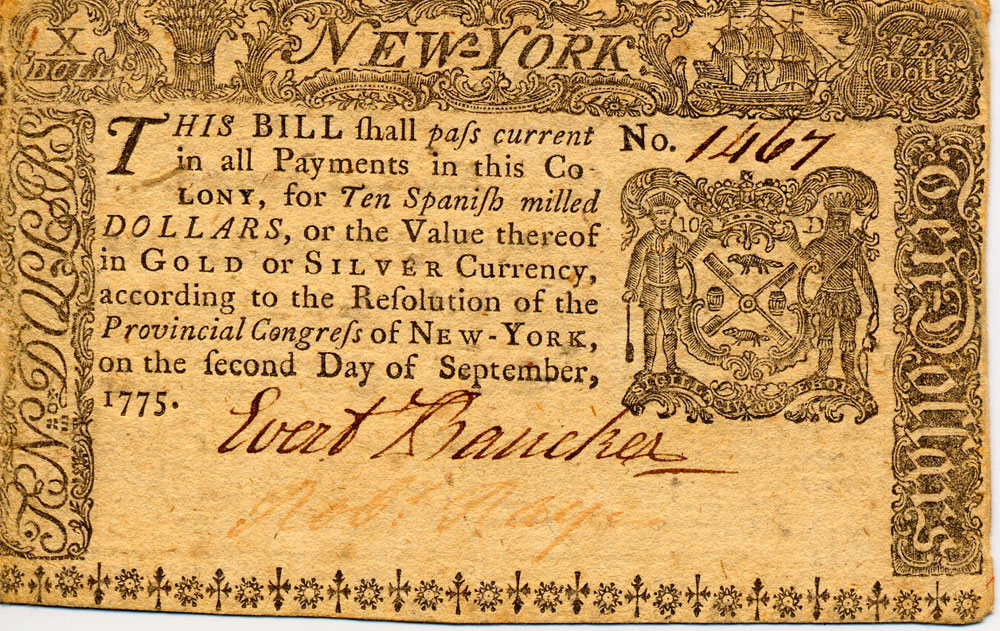 X
DOLLs
NEW-YORK.
TEN
Dolls.
THIS BILL ſhall paſs current
in all Payments in this Co-
LONY, for Ten Spaniſh milled
DOLLARS, or the Value thereof
in GOLD or SILVER Currency,
according to the Reſolution of the
Provincial Congreſs of NEW-YORK,
on the ſecond Day of September,
1775.
No. 1467
10 D
SIGILL
Evert Bancker
Robt. Ray
TEN DOLLARS
Ten Dollars